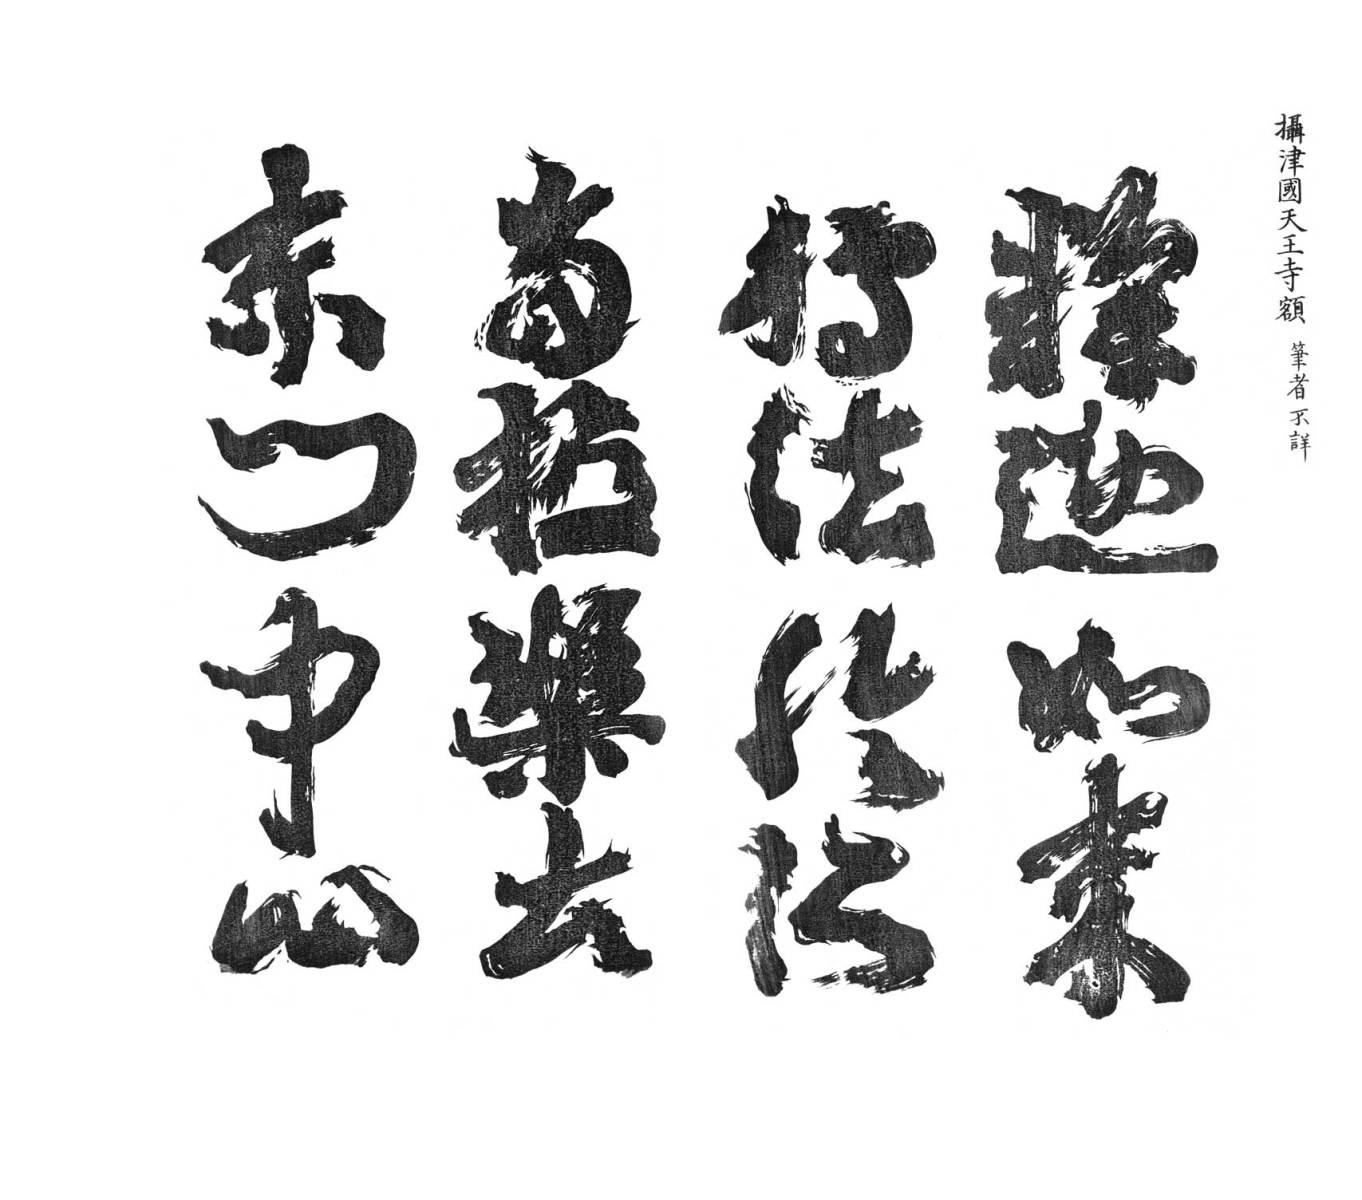 攝津國天王寺額 筆者不詳
釋迦如來
轉法輪所
當極樂土
東門中心